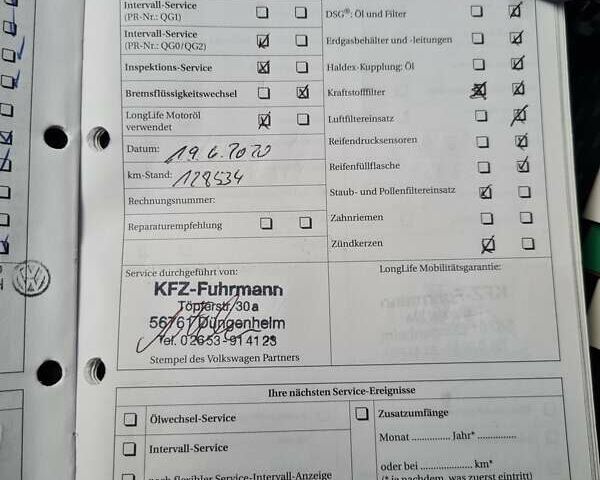 Intervall-Service
(PR-Nr.: QG1)
Intervall-Service
(PR-Nr.: QG0/QG2)
Inspektions-Service
Bremsflüssigkeitswechsel
LongLife Motoröl
verwendet
Datum: 19.6.2020
km-Stand: 128534
Rechnungsnummer:
Reparaturempfehlung
DSG®: Öl und Filter
Erdgasbehälter und -leitungen
Haldex-Kupplung: Öl
Kraftstofffilter
Luftfiltereinsatz
Reifendrucksensoren
Reifenfüllflasche
Staub- und Pollenfiltereinsatz
Zahnriemen
Zündkerzen
Service durchgeführt von:
KFZ-Fuhrmann
Töpferstr. 30a
56761 Düngenheim
Tel. 02653-914123
Stempel des Volkswagen Partners
LongLife Mobilitätsgarantie:
Ihre nächsten Service-Ereignisse
Ölwechsel-Service
Intervall-Service
nach flexibler Service-Intervall-Anzeige
Zusatzumfänge
Monat .............. Jahr* ..............
oder bei ................... km*
(* je nachdem, was zuerst eintritt)